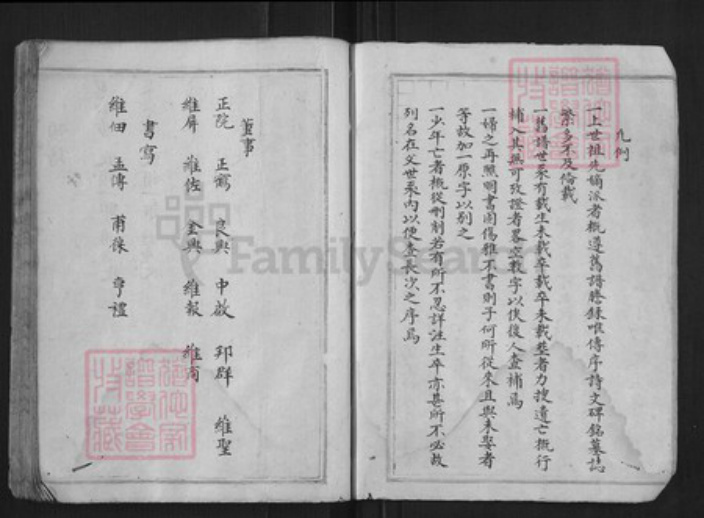 凡例
一上世祖先嫡派者概遵舊譜謄錄唯傳序詩文碑銘墓誌
繁多不及備載
一舊譜世系有載生未載卒載卒未載塟者力搜遺亡概行
補入其無可攷證者畧空數字以俟後人查補焉
一婦之再醮明書固傷雅不書則子何所從來且與未娶者
等故加一原字以别之
一少年亡者概從刪削若有所不忍詳注生卒亦甚所不必故
列名在父世系內以便查長次之序焉
董事
正院 正 良興 中啟 邦群 維聖
維屏 維佐 金興 維報 維
書寫
維佃 孟傳 甫 禮
FamilySearch
譜學會
特藏
譜學會
特藏